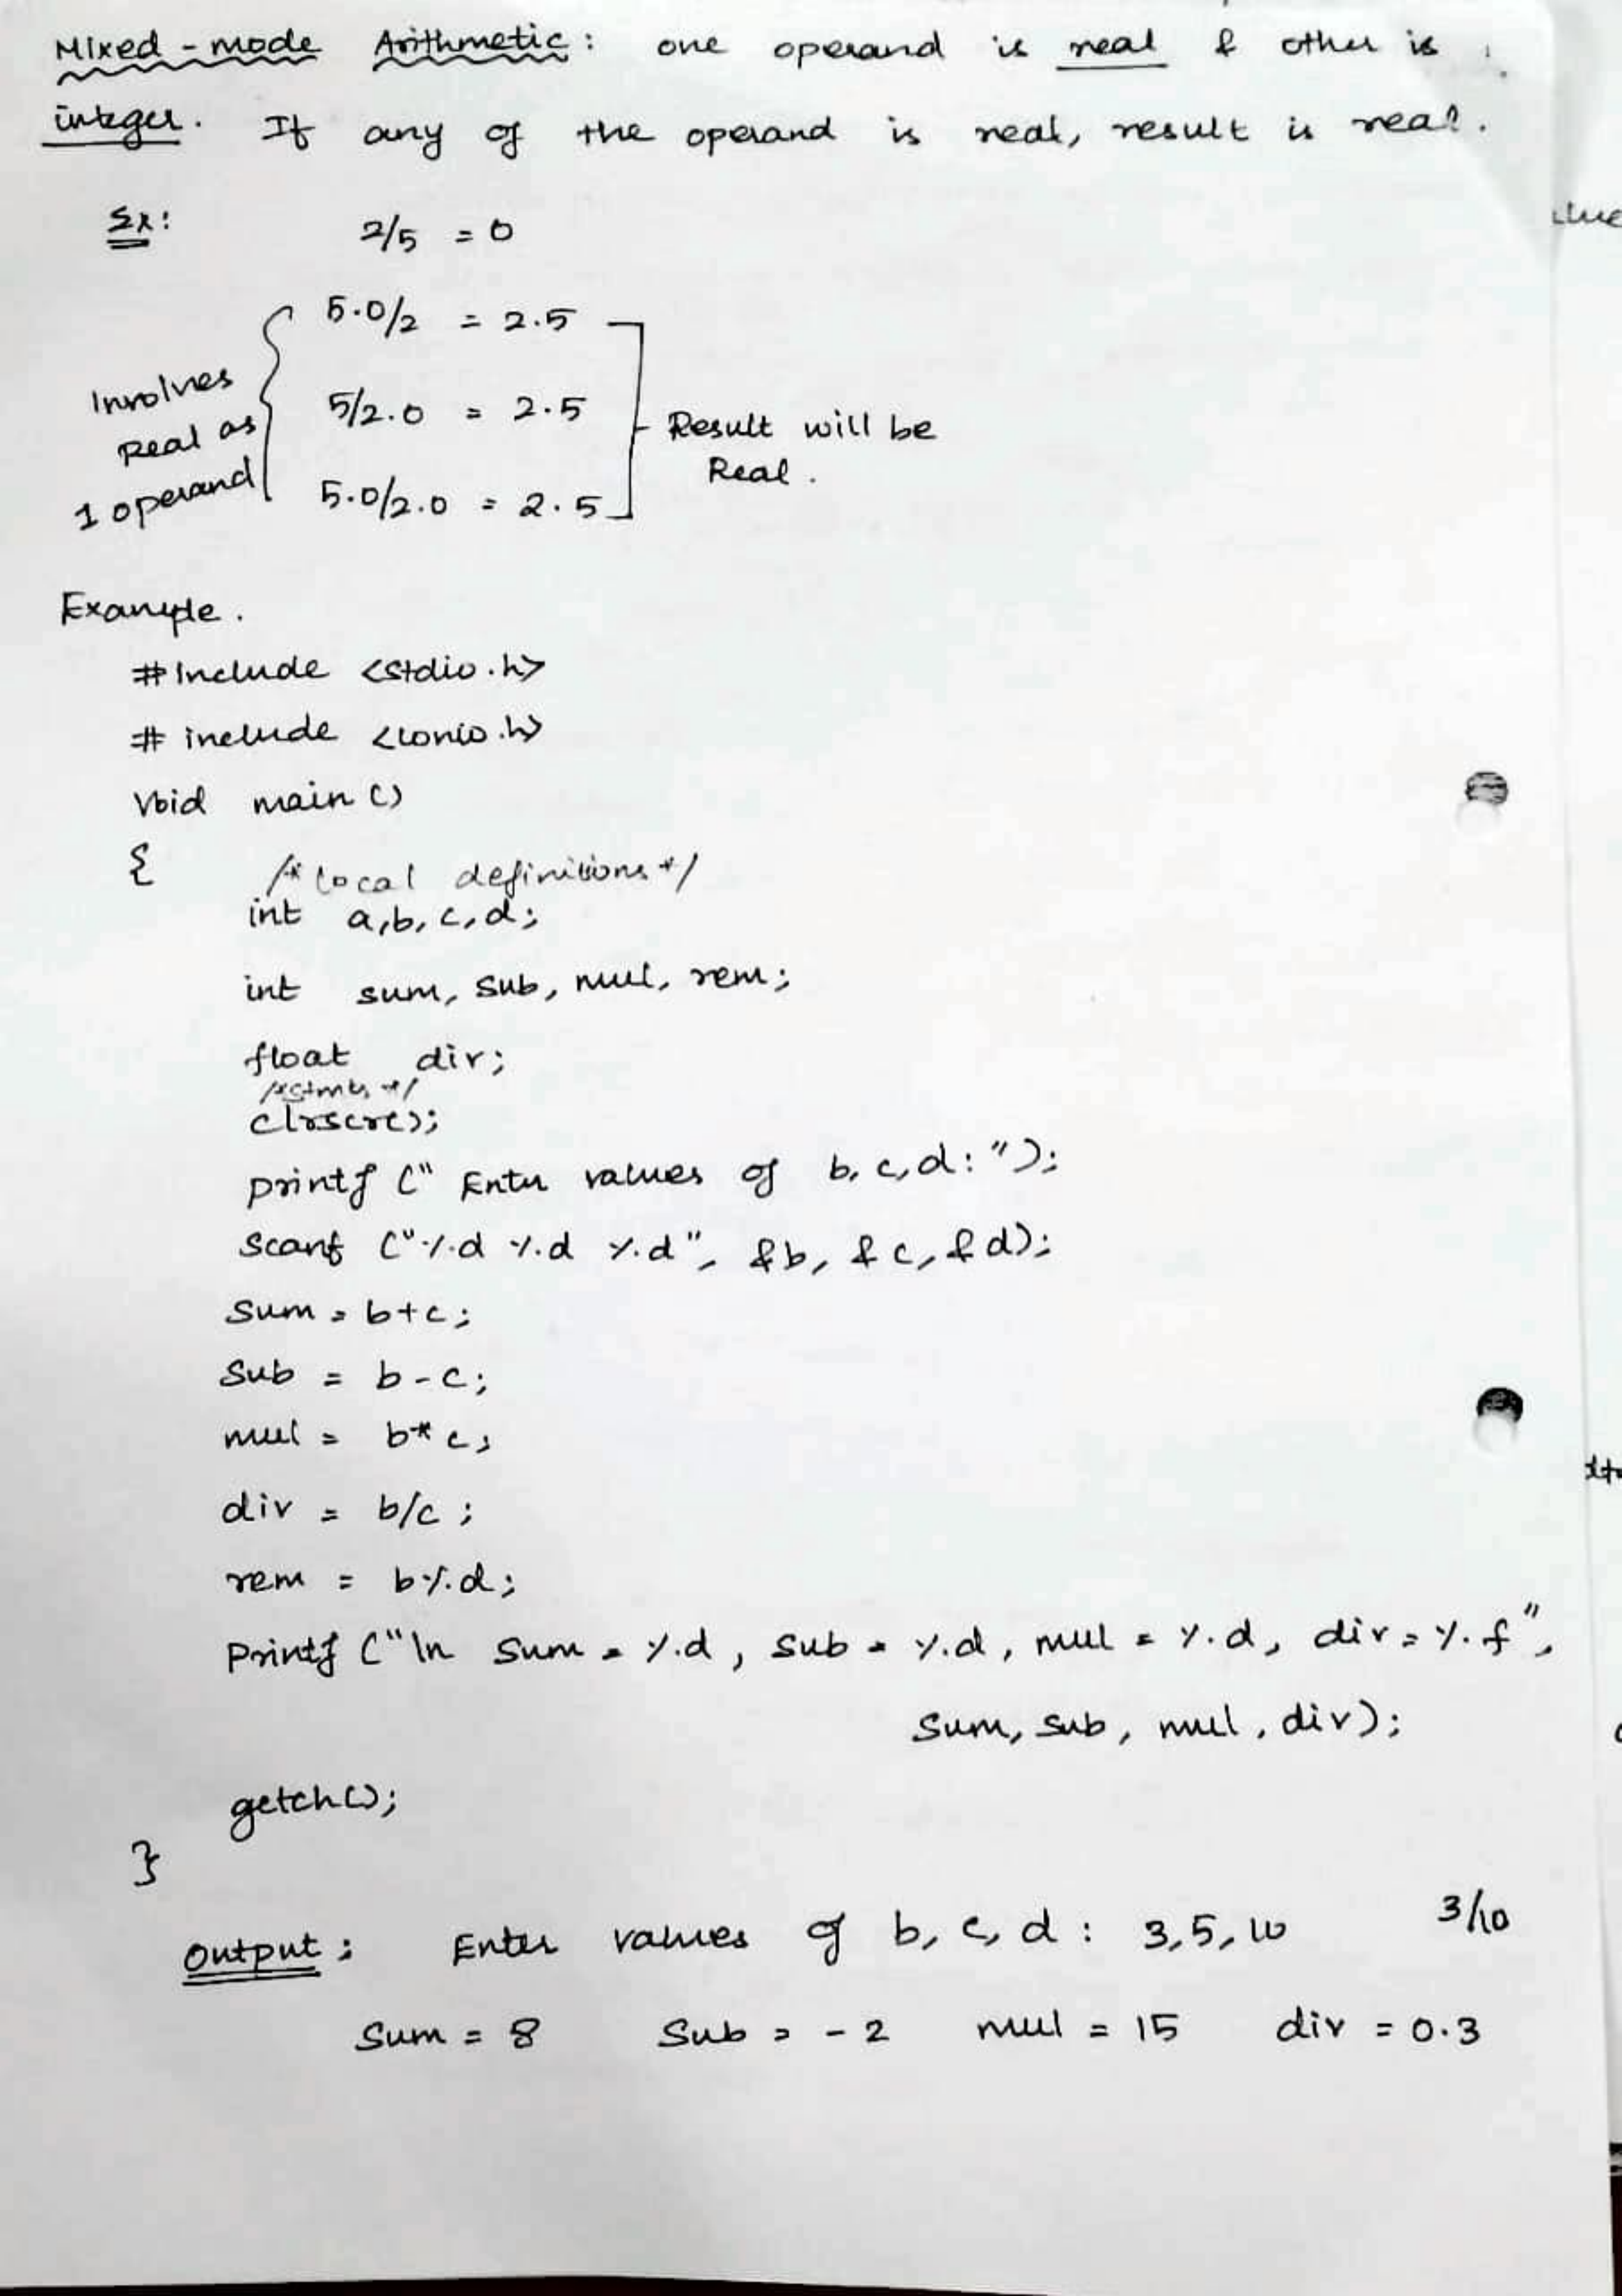 Mixed-mode Arithmetic: one operand is real & other is
integer. If any of the operand is real, result is real.
Ex: 2/5 = 0
5.0/2 = 2.5
5/2.0 = 2.5
5.0/2.0 = 2.5
Involves
Real as
1 operand
Result will be
Real.
Example.
#Include <stdio.h>
# include <conio.h>
Void main()
{ /* local definitions */
int a,b,c,d;
int sum, sub, mul, rem;
float div;
/*stmts */
clrscr();
printf (" Enter values of b,c,d:");
Scanf ("%d %d %d", &b, &c, &d);
Sum = b+c;
Sub = b-c;
mul = b*c;
div = b/c;
rem = b%d;
Printf ("\n Sum = %d, sub = %d, mul = %d, div = %f",
Sum, sub, mul, div);
getch();
}
Output: Enter values of b, c, d: 3,5,10 3/10
Sum = 8 Sub = -2 mul = 15 div = 0.3